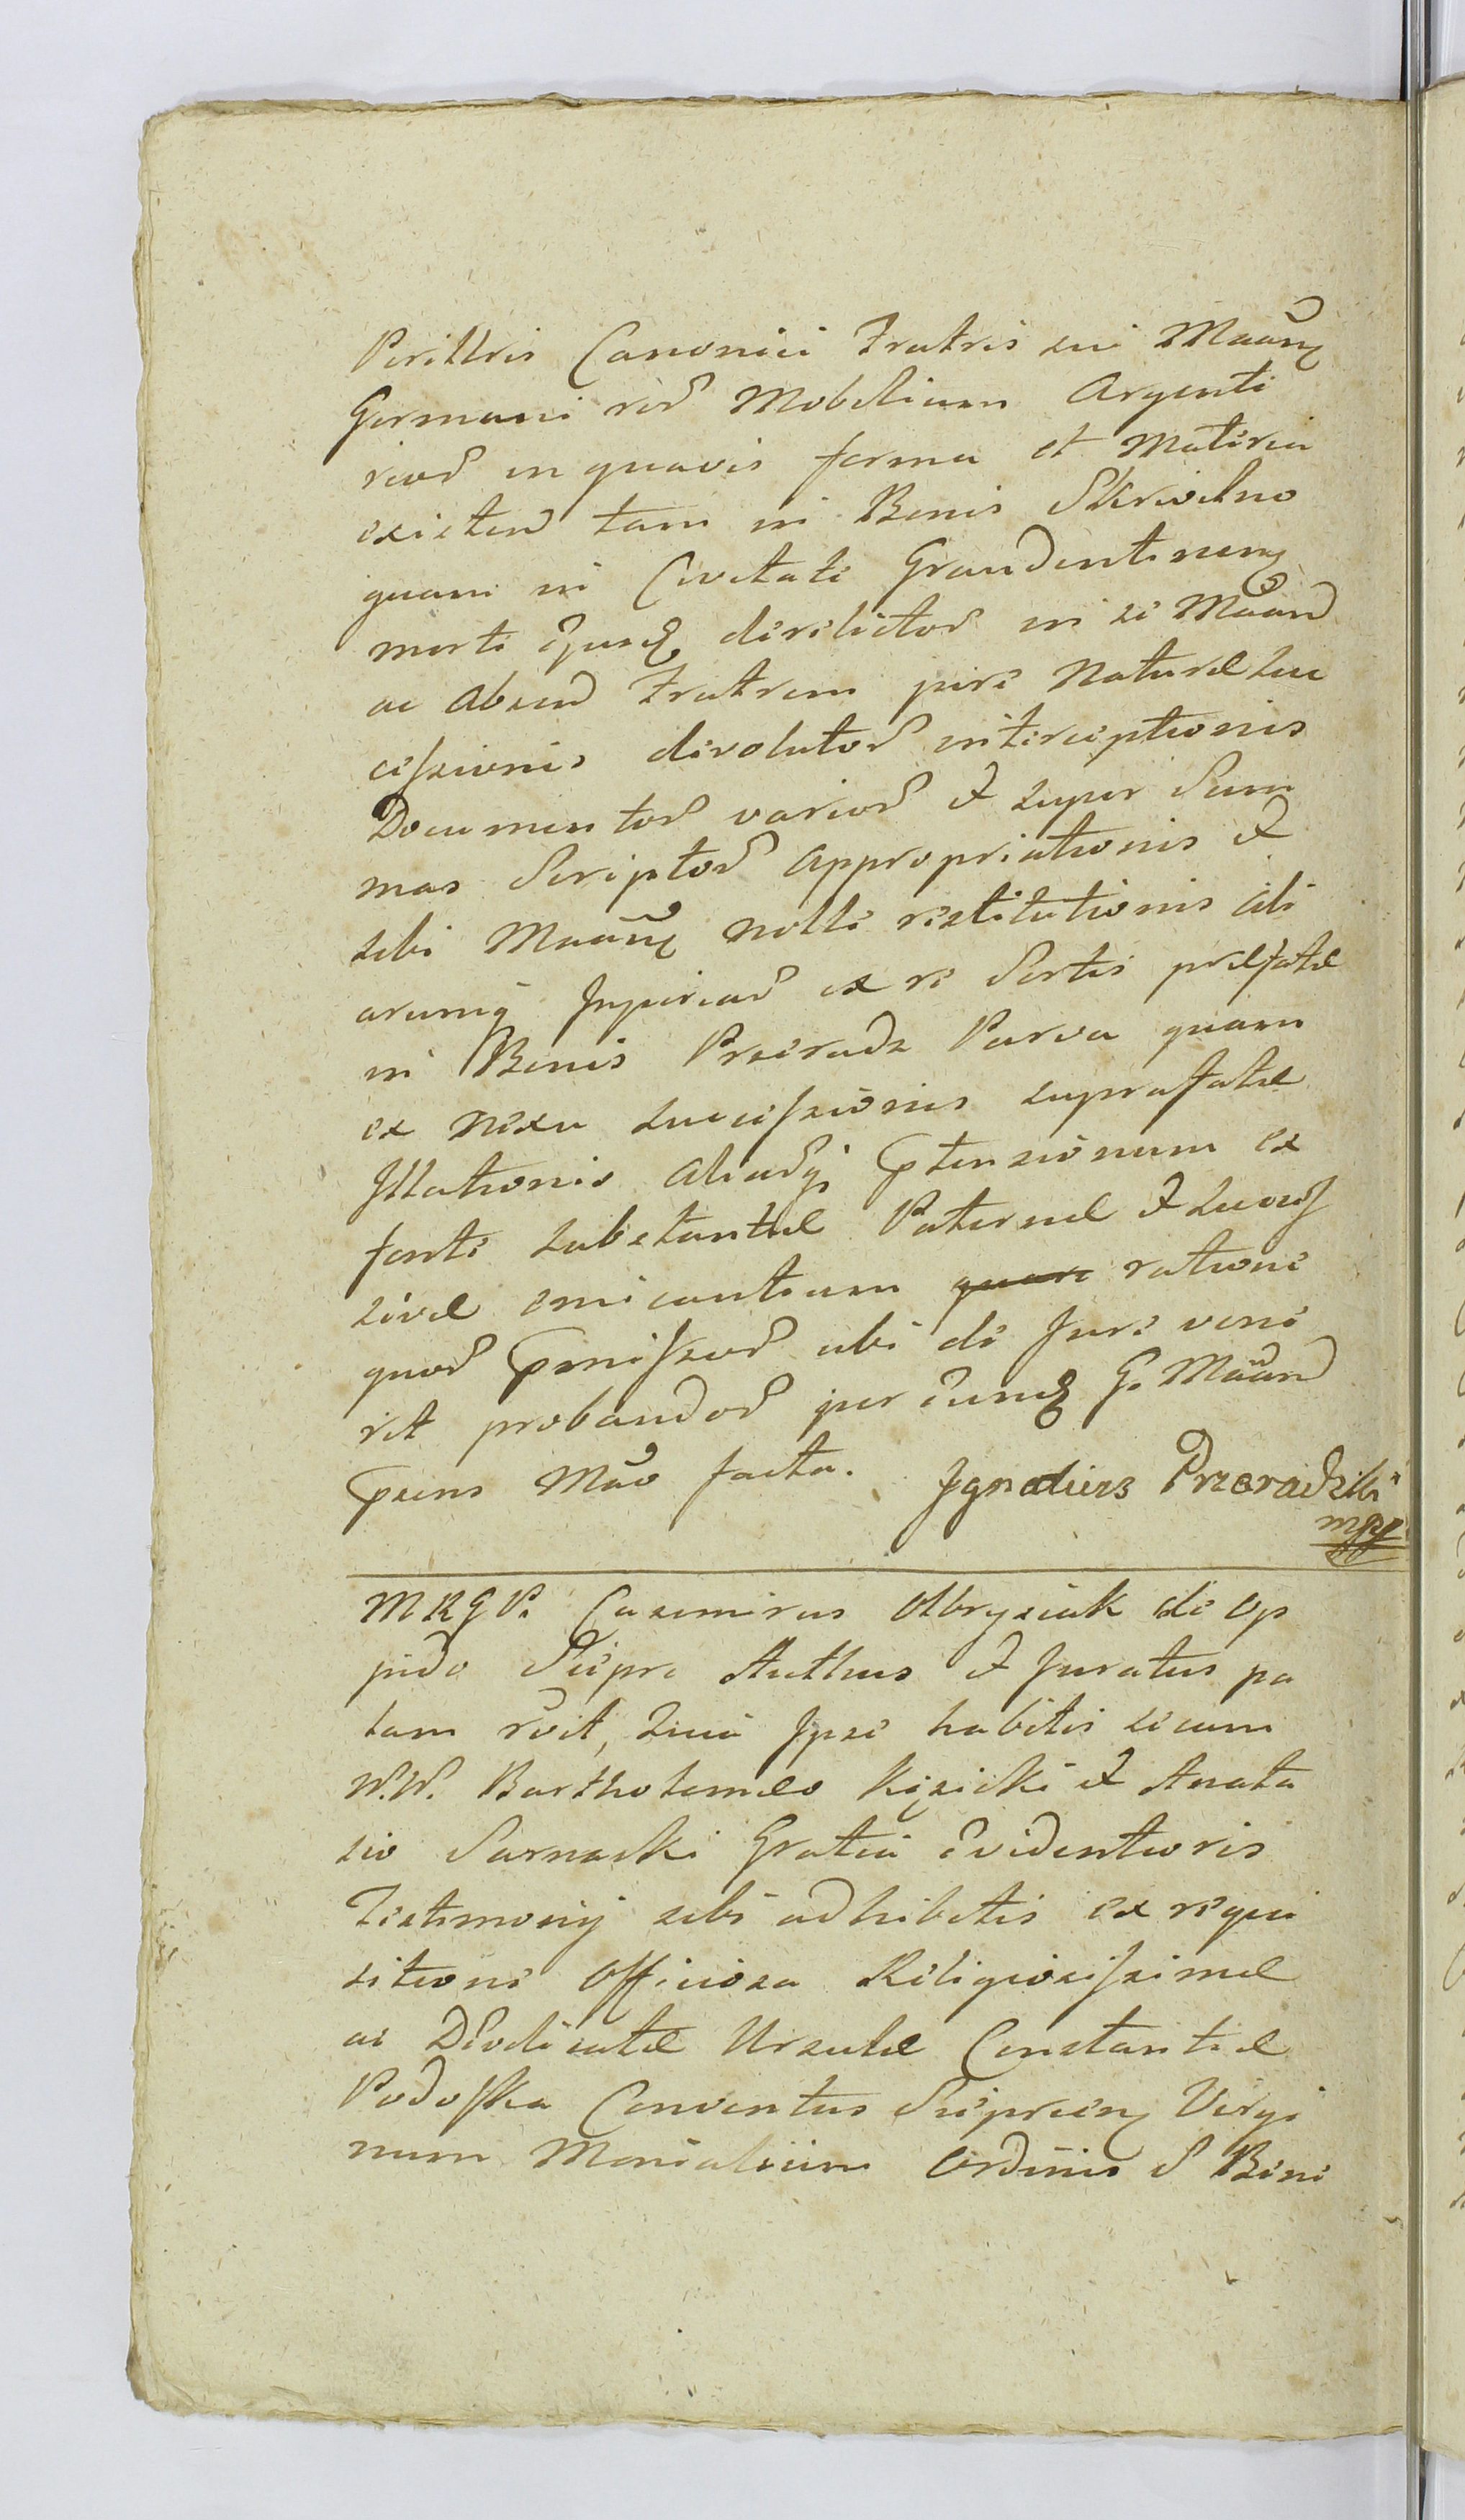 Perillris Canonici Fratris sui Maãn
Germani reõ Mobilium Argenti
rioõ in quavis forma et Materia
existeñ tam in Bonis Skrwilno
quam in Civitate Graudentineñ
morte ejusđ derelictoõ in se Maañ
ac Abseñ Fratrem jure Naturæ suc
cessionis devolutoõ interceptionis
Documentoõ varioõ et super Sum
mas Scriptoõ Appropriationis et
sibi Maañ nolle restitutionis Ali
arumq Injuriaõ ex re Sortis præfatæ
in Bonis Przeradz Parva quam
ex nexu successionis suprafatæ
Illationis Aliaõq ptensionum ex
fonte substantiæ Paternæ et Success
sivæ emicantium quare ratione
quoõ pmissoõ ubi de Jure vene
rit probandoõ per eunđ G. Maañ
psens Mão facta. Ignatius Przeradzki
mpp
MRGP. Casimirus Olbrysiak de Op
pido Sieprc Authus et Juratus pa
lam rõit, quia Ipse habitis secum
W.W. Bartholomeo Kęsicki et Anasta
sio Sarnacki Gratia evidentioris
Testimonij sibi adhibitis ex requi
sitione officiosa Religiosissimæ
ac Dẽodicatæ Ursulæ Constantiæ
Podoska Conventus Siepreceñ Virgi
num Monialium Ordinis S Bene